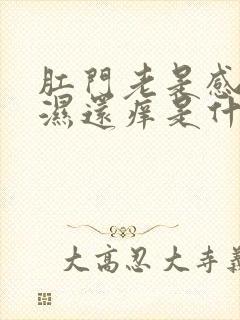 肛門老是感
濕還癢是什
大高忍大寺